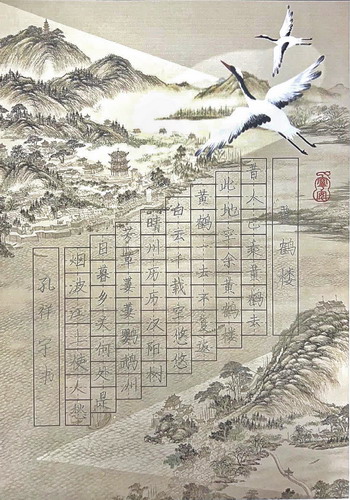 黄鹤楼
昔人已乘黄鹤去
此地空余黄鹤楼
黄鹤一去不复返
白云千载空悠悠
晴川历历汉阳树
芳草萋萋鹦鹉洲
日暮乡关何处是
烟波江上使人愁
孔祥宇书